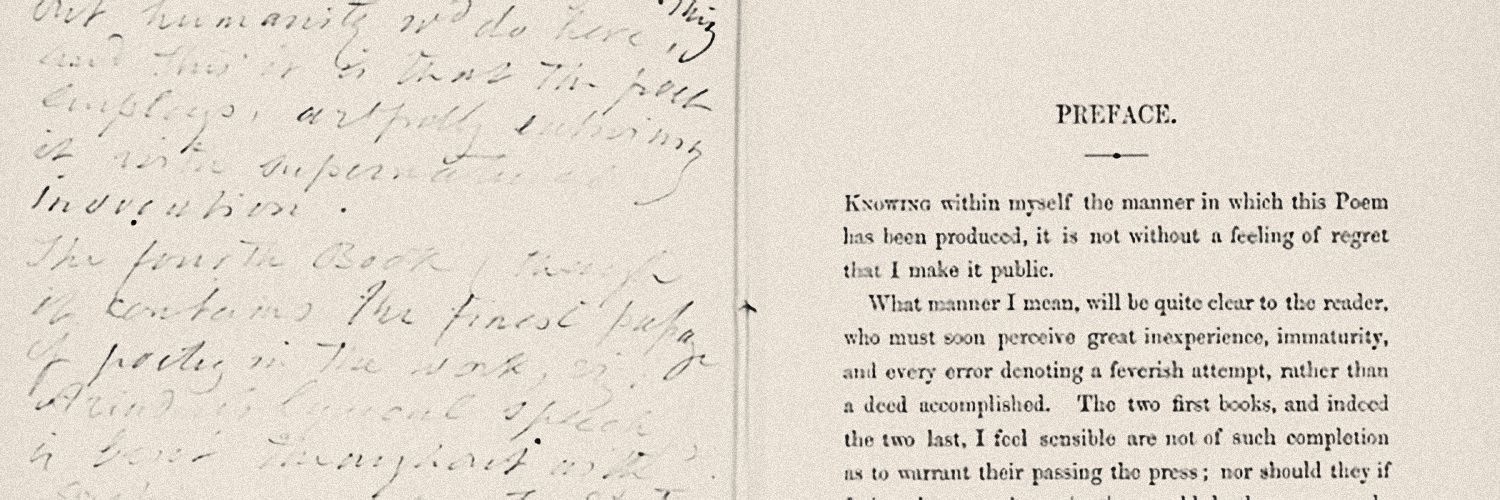 but humanity wd do here, This
and this it is that the poet
employs, artfully
it with supernatural
invocation.
The fourth Book, though
it contains the finest
of poetry in the work,
speech
is throughout
PREFACE.
KNOWING within myself the manner in which this Poem
has been produced, it is not without a feeling of regret
that I make it public.
What manner I mean, will be quite clear to the reader,
who must soon perceive great inexperience, immaturity,
and every error denoting a feverish attempt, rather than
a deed accomplished. The two first books, and indeed
the two last, I feel sensible are not of such completion
as to warrant their passing the press; nor should they if